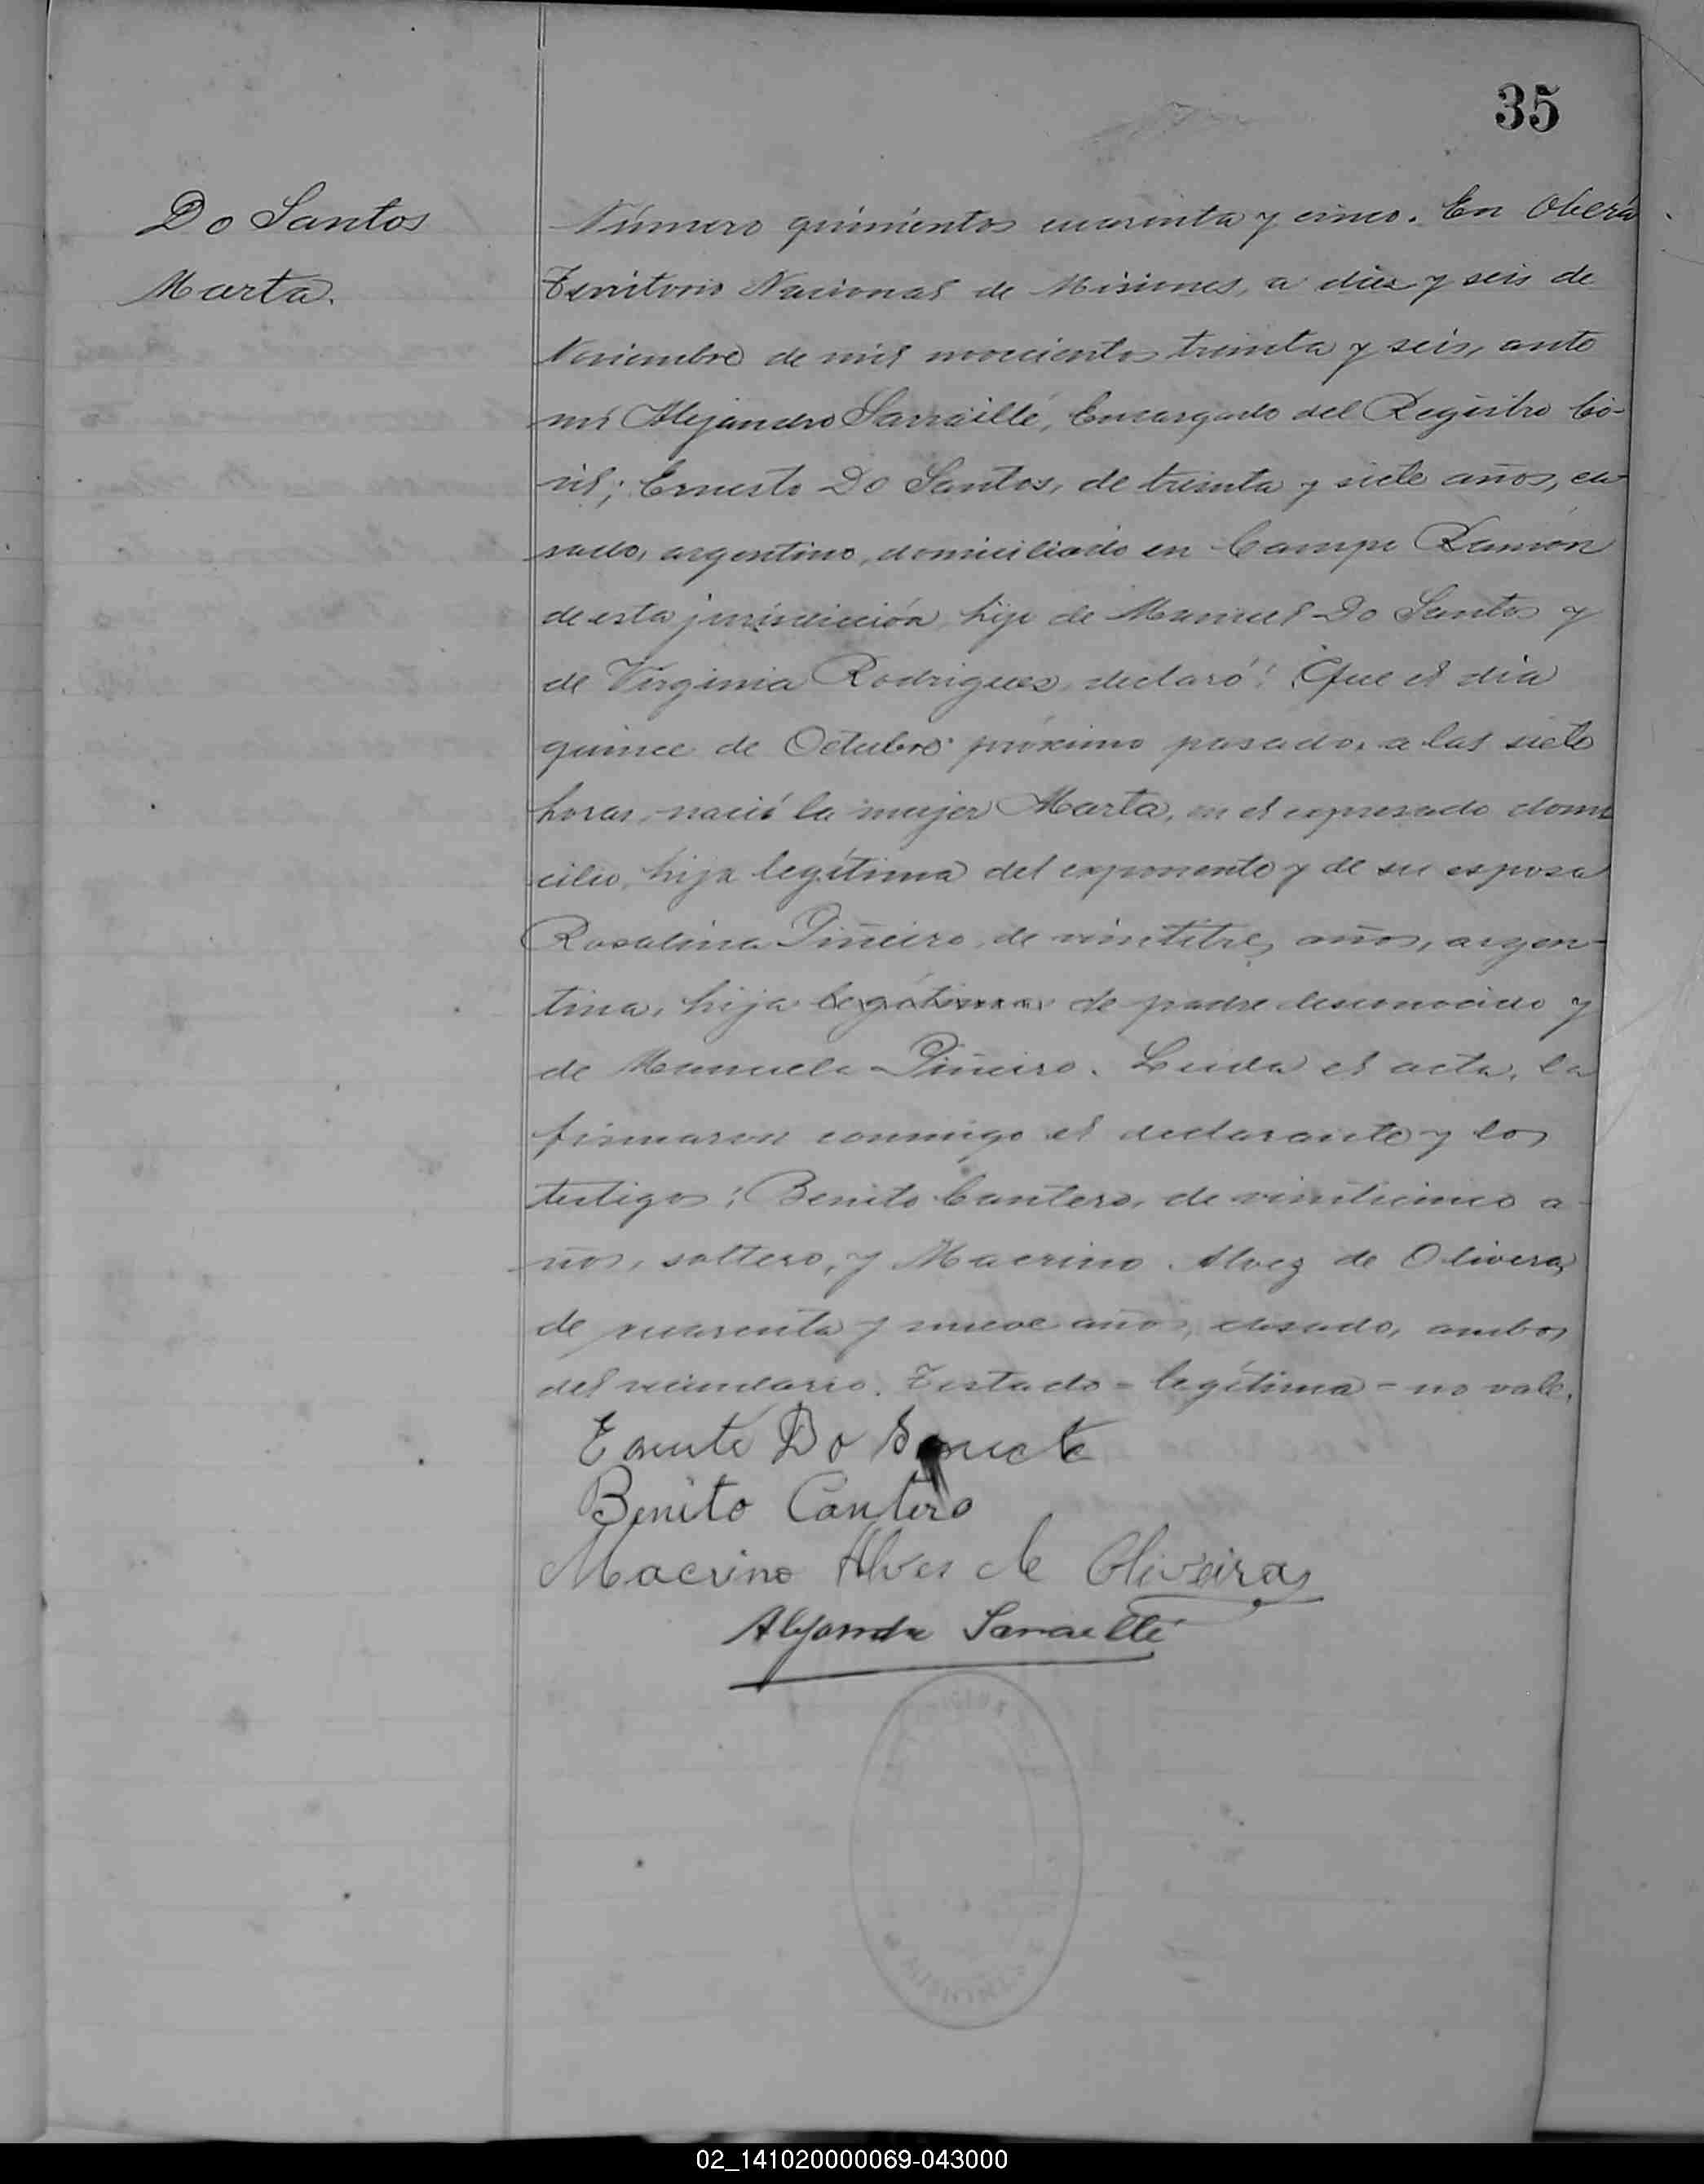 35
Do Santos
Marta.
Número quinientos cuarenta y cinco. En Oberá
Territorio Nacional de Misiones, a diez y seis de
Noviembre de mil novecientos treinta y seis, ante
mí Alejandro Sarraillé, Encargado del Registro Ci-
vil; Ernesto Do Santos, de treinta y siete años, ca-
sado, argentino, domiciliado en Campo Ramón
de esta jurisdicción, hijo de Manuel Do Santos y
de Virginia Rodrigues, declaró: Que el día
quince de Octubre próximo pasado, a las siete
horas, nació la mujer Marta, en el expresado domi
cilio, hija legítima del exponente y de su esposa
Rosalina Piñeiro, de veintitres años, argen-
tina, hija legítima de padre desconocido y
de Manuela Piñeiro. Leida el acta, la
firmaron conmigo el declarante y los
testigos: Benito Cantero, de veinticinco a-
ños, soltero, y Macrino Alvez de Olivera,
de cuarenta y nueve años, casado, ambos
del vecindario. Testado = legítima = no vale.
Do
Benito Cantero
Macrino Alves de Oliveira
Alejandro Sarraillé
MISIONES
02_141020000069-043000